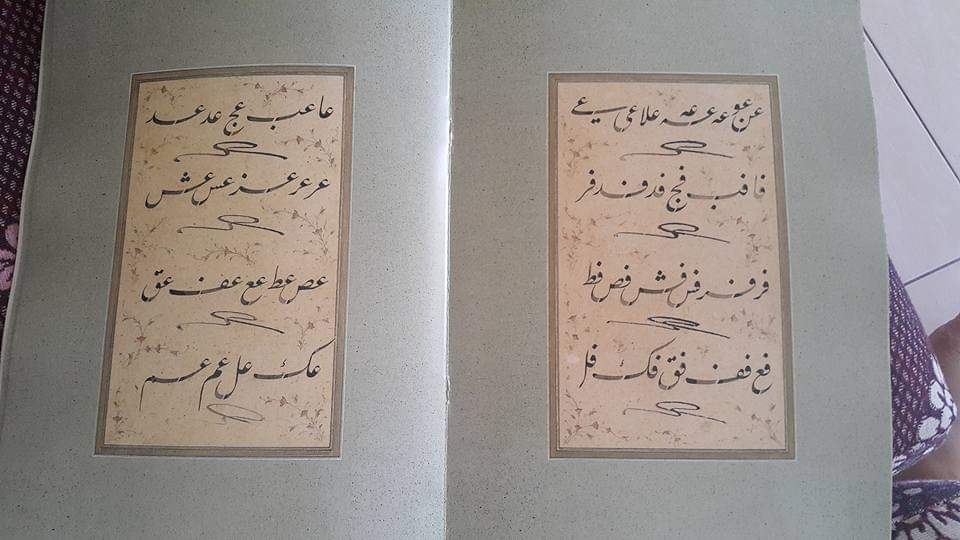 عا عب عج عد عد
عر عر عز عس عش
عص عط عع عف عق
عک عل عم عم
عن عو عه عه علا عی عے
فا فب فج فد فد فر
فر فز فس فش فص فط
فع فف فق فک فل